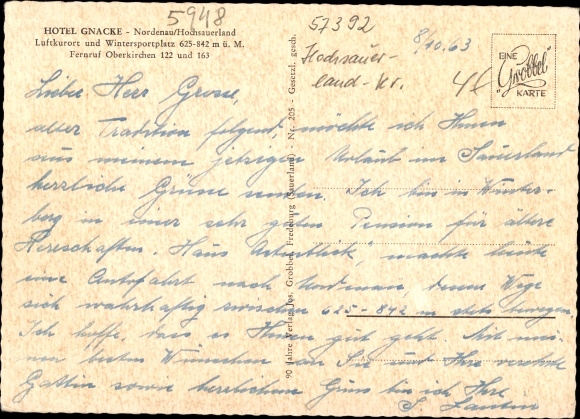 5948
HOTEL GNACKE - Nordenau/Hochsauerland
Luftkurort und Wintersportplatz 625-842 m ü. M.
Fernruf Oberkirchen 122 und 163
57392
Hochsauer-
land-Kr.
8/10.63
EINE
"Grobbel"
KARTE
90 Jahre Verlag Jos. Grobbel, Fredeburg (Sauerland) - Nr. 205 - Gesetzl. gesch.
Lieber Herr Grosse,
alter Tradition folgend, möchte ich Ihnen
aus meinem jetzigen Urlaub im Sauerland
herzliche Grüsse senden. Ich bin in Winter-
berg in einer sehr guten Pension für ältere
Herrschaften. Haus, machte heute
eine Autofahrt nach Nordenau, deren Wege
sich wahrhaftig zwischen 625-842 m stets bewegen.
Ich hoffe, dass es Ihnen gut geht. Mit mei-
nen besten Wünschen an Sie und Ihre verehrte
Gattin sowie herzlichem Gruss bin ich Ihre